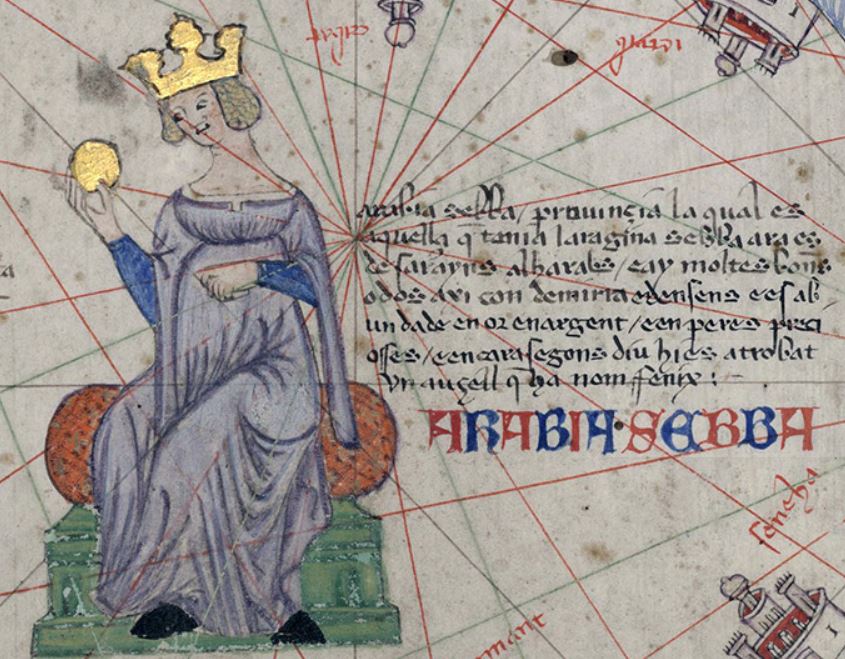 arabia sebba / prouinçia la qual es
aquella q̄ tenia laragina sebba ara es
de sarayns alharabs / e ay moltes bones
odos axi con de miria e densens e es ab
undade en or en argent / e en peres preci
osses / e en cara segons diu hi es atrobat
vn auçell q̄ ha nom ffenix :
ARABIA SEBBA